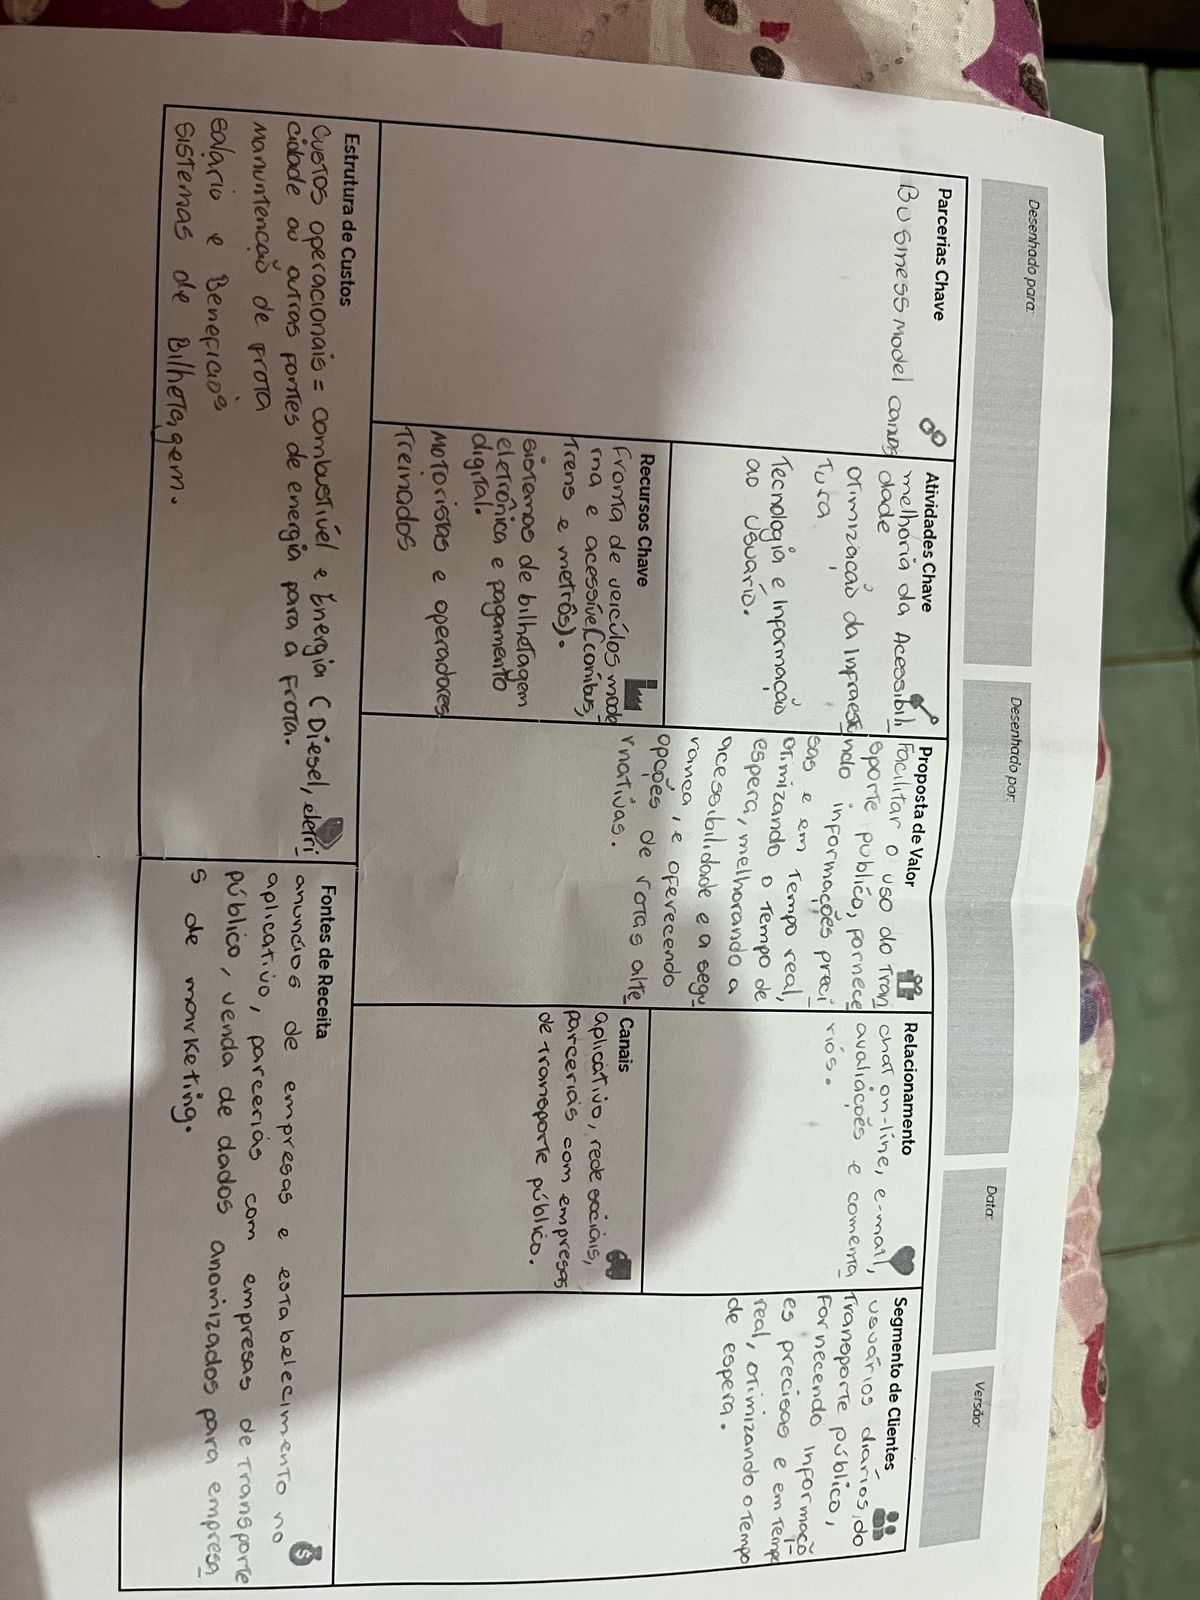 Desenhado para:
Desenhado por:
Data:
Versão:
Parcerias Chave
Business Model canos
Atividades Chave
melhoria da Acessibili
dade
otimização da Infraestr
Tura
Tecnologia e Informação
ao usuário.
Recursos Chave
Fronta de veículos mode
rna e acessível (ônibus,
Trens e metrôs).
sistemas de bilhetagem
eletrônica e pagamento
digital.
Motoristas e operadores
Treinados
Proposta de Valor
Facilitar o uso do Tran
sporte público, fornece
ndo informações preci
sas e em Tempo real,
otimizando o Tempo de
espera, melhorando a
acessibilidade e a segu
rança, e oferecendo
opções de rotas alte
rnativas.
Relacionamento
chat on-line, e-mail,
avaliações e comenta
riós.
Canais
aplicativo, rede sociais,
parcerias com empresas
de transporte público.
Segmento de Clientes
usuários diários do
Transporte público,
Fornecendo informaçõ
es precisas e em Tempo
real, otimizando o Tempo
de espera.
Estrutura de Custos
Custos operacionais = combustível e Energia (Diesel, eletri
cidade ou outras fontes de energia para a Frota.
manuntencão de Frota
salário e Beneficiós
sistemas de Bilhetagem.
Fontes de Receita
anunciós de empresas e estabelecimento no
aplicativo, parceriás com empresas de Transporte
público, venda de dados anomizados para empresa
s de marketing.